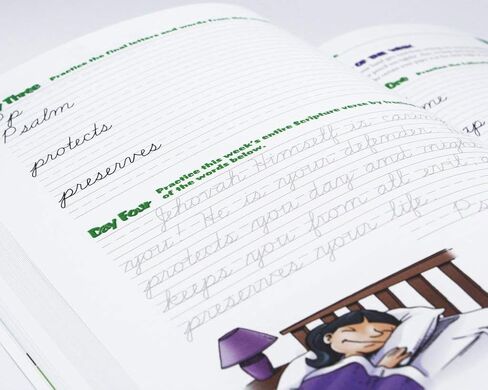 Three Practice the final letters and words from this
Pp
Psalm
protects
preserves
Day Four Practice this week's entire Scripture verse by
of the words below.
Jehovah Himself is caring
you! He is your defender.
protects you day and night
keeps you from all evil
preserves your life
Ps
OF THE WEEK
One Practice the
me
up